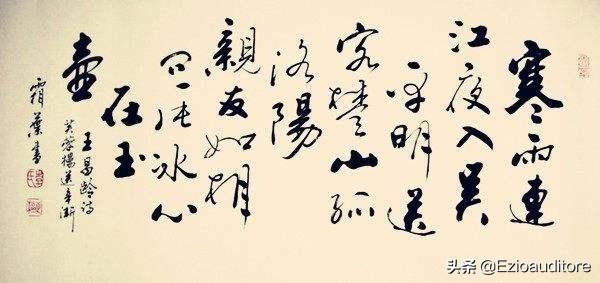 寒雨連
江夜入吳
平明送
客楚山孤
洛陽
親友如相
問一片冰心
在玉
壺
王昌齡詩
芙蓉樓送辛漸
霜葉書
头条 @Ezioauditore